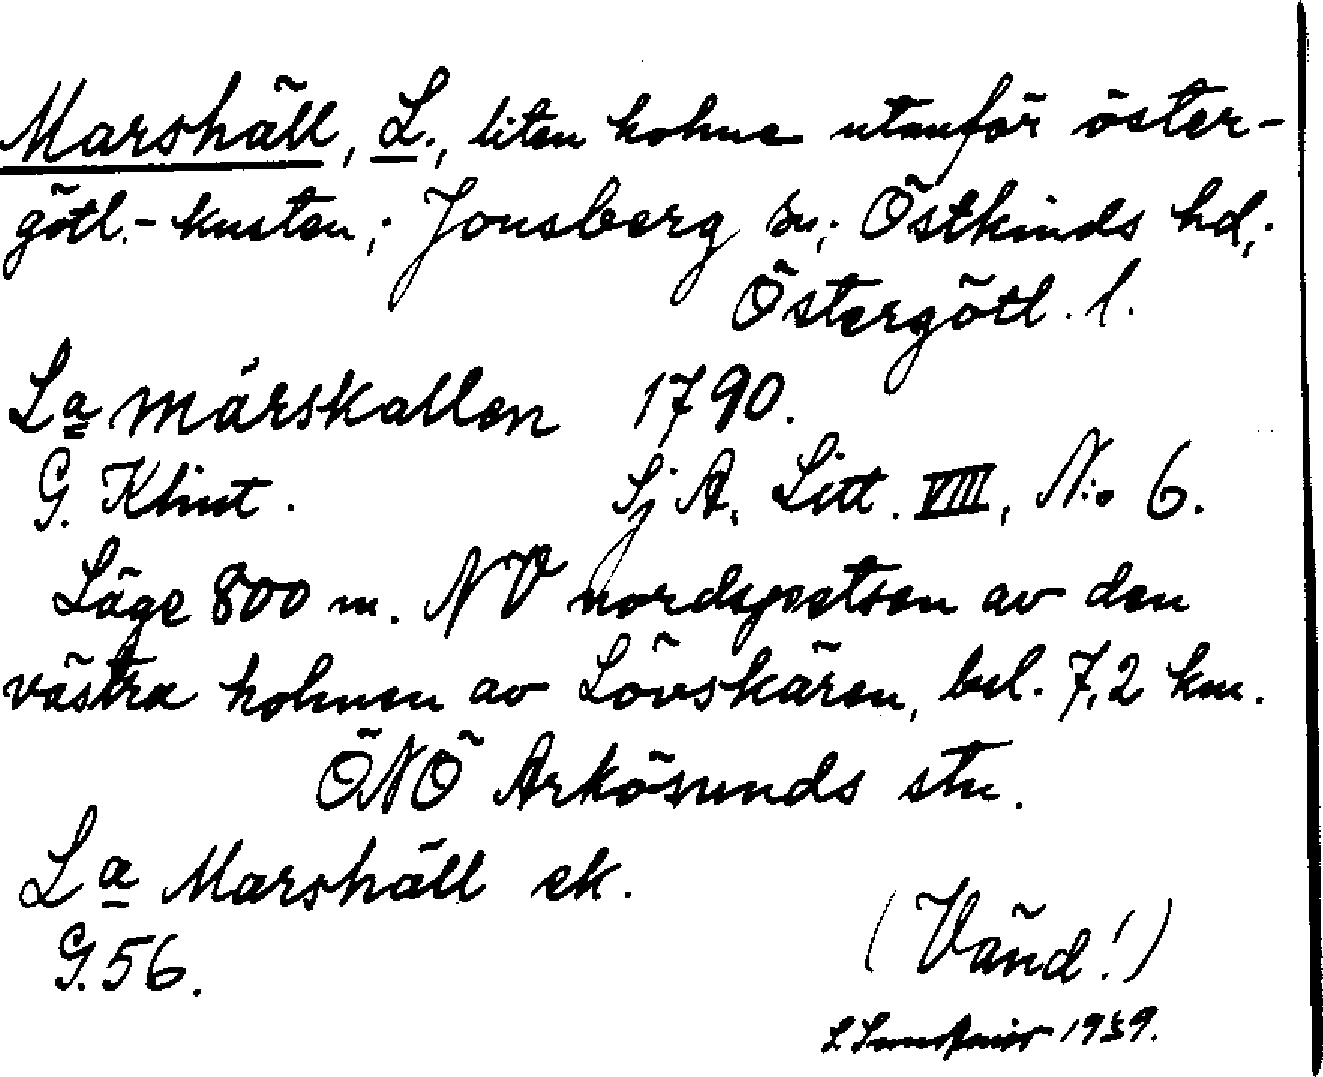 Marshäll, L., liten holme utanför öster-
götl.- kusten; Jonsberg sn; Östkinds hd;
Östergötl. l.
La Mårskallen 1790.
G. Klint. Sj A. Litt. VIII, N:o 6.
Läge 800 m. NV nordspetsen av den
västra holmen av Lövskären, bel. 7,2 km.
ÖNÖ Arkösunds stn.
La Marshäll ek.
G. 56.
(Vänd!)
1939.